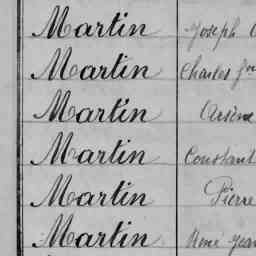 Martin Joseph
Martin Charles
Martin Arsène
Martin Constant
Martin Pierre
Martin René Jean